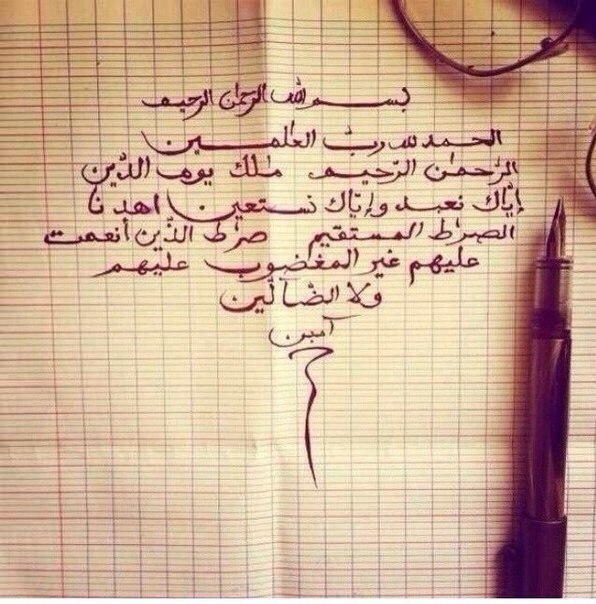 بسم الله الرحمن الرحيم
الحمد لله رب العلمين
الرحمن الرحيم ملك يوم الدين
إياك نعبد وإياك نستعين اهدنا
الصراط المستقيم صرط الذين أنعمت
عليهم غير المغضوب عليهم
ولا الضالين
آمين